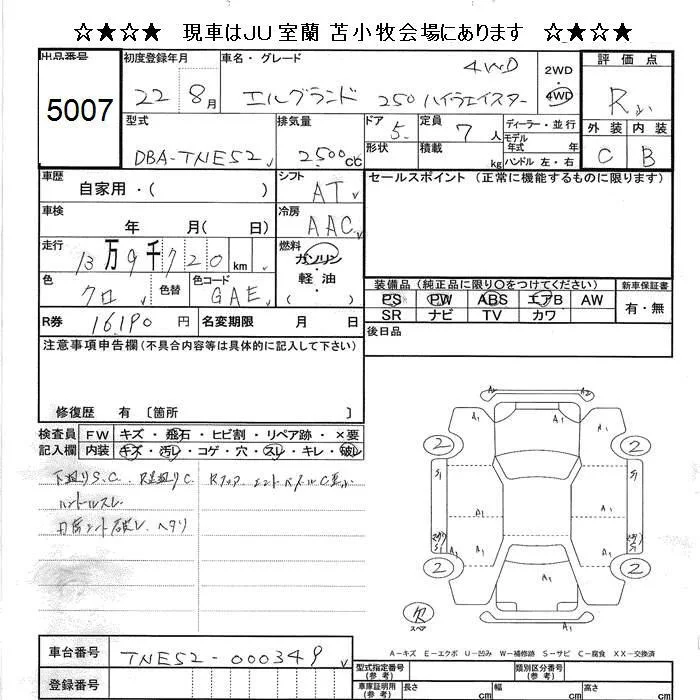 ☆★☆★ 現車はJU室蘭 苫小牧会場にあります ☆★☆★
出品番号 初度登録年月 車名・グレード 評価点
5007 22 8月 エルグランド 250 ハイウェイスター 4WD 2WD 4WD R
型式 排気量 ドア 5 定員 7人 ディーラー・並行 外装 内装
DBA-TNE52 2500cc 形状 積載 kg モデル年式 年式 ハンドル 左・右 C B
車歴 自家用・( ) シフト AT セールスポイント (正常に機能するものに限ります)
車検 年 月( 日) 冷房 AAC
走行 13万9千720km 燃料 ガソリン・軽油( )
色 クロ 色替 色コード GAE
装備品 (純正品に限り○をつけてください) 新車保証書
PS PW ABS エアB AW 有・無
SR ナビ TV カワ
R券 16,190円 名変期限 月 日 後日品
注意事項申告欄(不具合内容等は具体的に記入して下さい)
修復歴 有 〔箇所 〕
検査員記入欄 FW キズ・飛石・ヒビ割・リペア跡・×要
内装 キズ・汚レ・コゲ・穴・スレ・キレ・破レ
下廻りS.C.
ハンドルスレ
A2 A2
A1 A1
A1 A1
2 2
S1 S1
A1 A1 A1
S1 S1
A2 A1 A1
2 2
A1
スペア
A-キズ E-エクボ U-凹み W-補修跡 S-サビ C-腐食 XX-交換済
車台番号 TNE52-000349 型式指定番号(参考) 類別区分番号(参考)
登録番号 車庫証明用(参考) 長さ cm 幅 cm 高さ cm